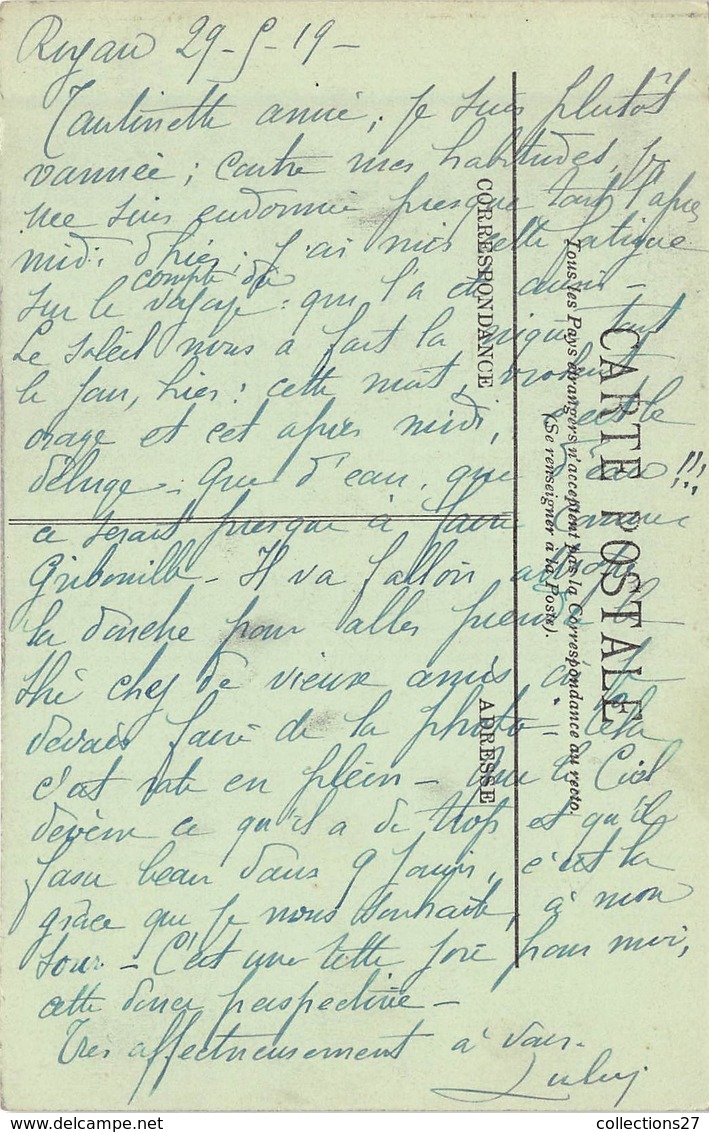 Royan 29-5-19-
Tantinette aimée, je suis plutôt
vannée; contre mes habitudes, je
me suis endormie presque tout l'après
midi d'hier. j'ai mis cette fatigue
sur le compte du voyage: qui l'a
Le soleil nous a fait la nique tout
le jour, hier: cette nuit, violent
orage et cet après midi, c'est le
déluge. Que d'eau, que d'eau!!!
ce serait presque à faire comme
Gribouille - Il va falloir
la douche pour aller prendre le
thé chez de vieux amis, où je
devais faire de la photo - Cela
c'est raté en plein - Que le Ciel
déverse ce qu'il a de trop et qu'il
fasse beau dans 9 jours, c'est la
grâce que je nous souhaite, à mon
tour - C'est une telle joie pour moi,
cette douce perspective -
Très affectueusement à vous.
CARTE POSTALE
Tous les Pays étrangers n'acceptent pas la Correspondance au recto.
(Se renseigner à la Poste).
CORRESPONDANCE
ADRESSE
collections27